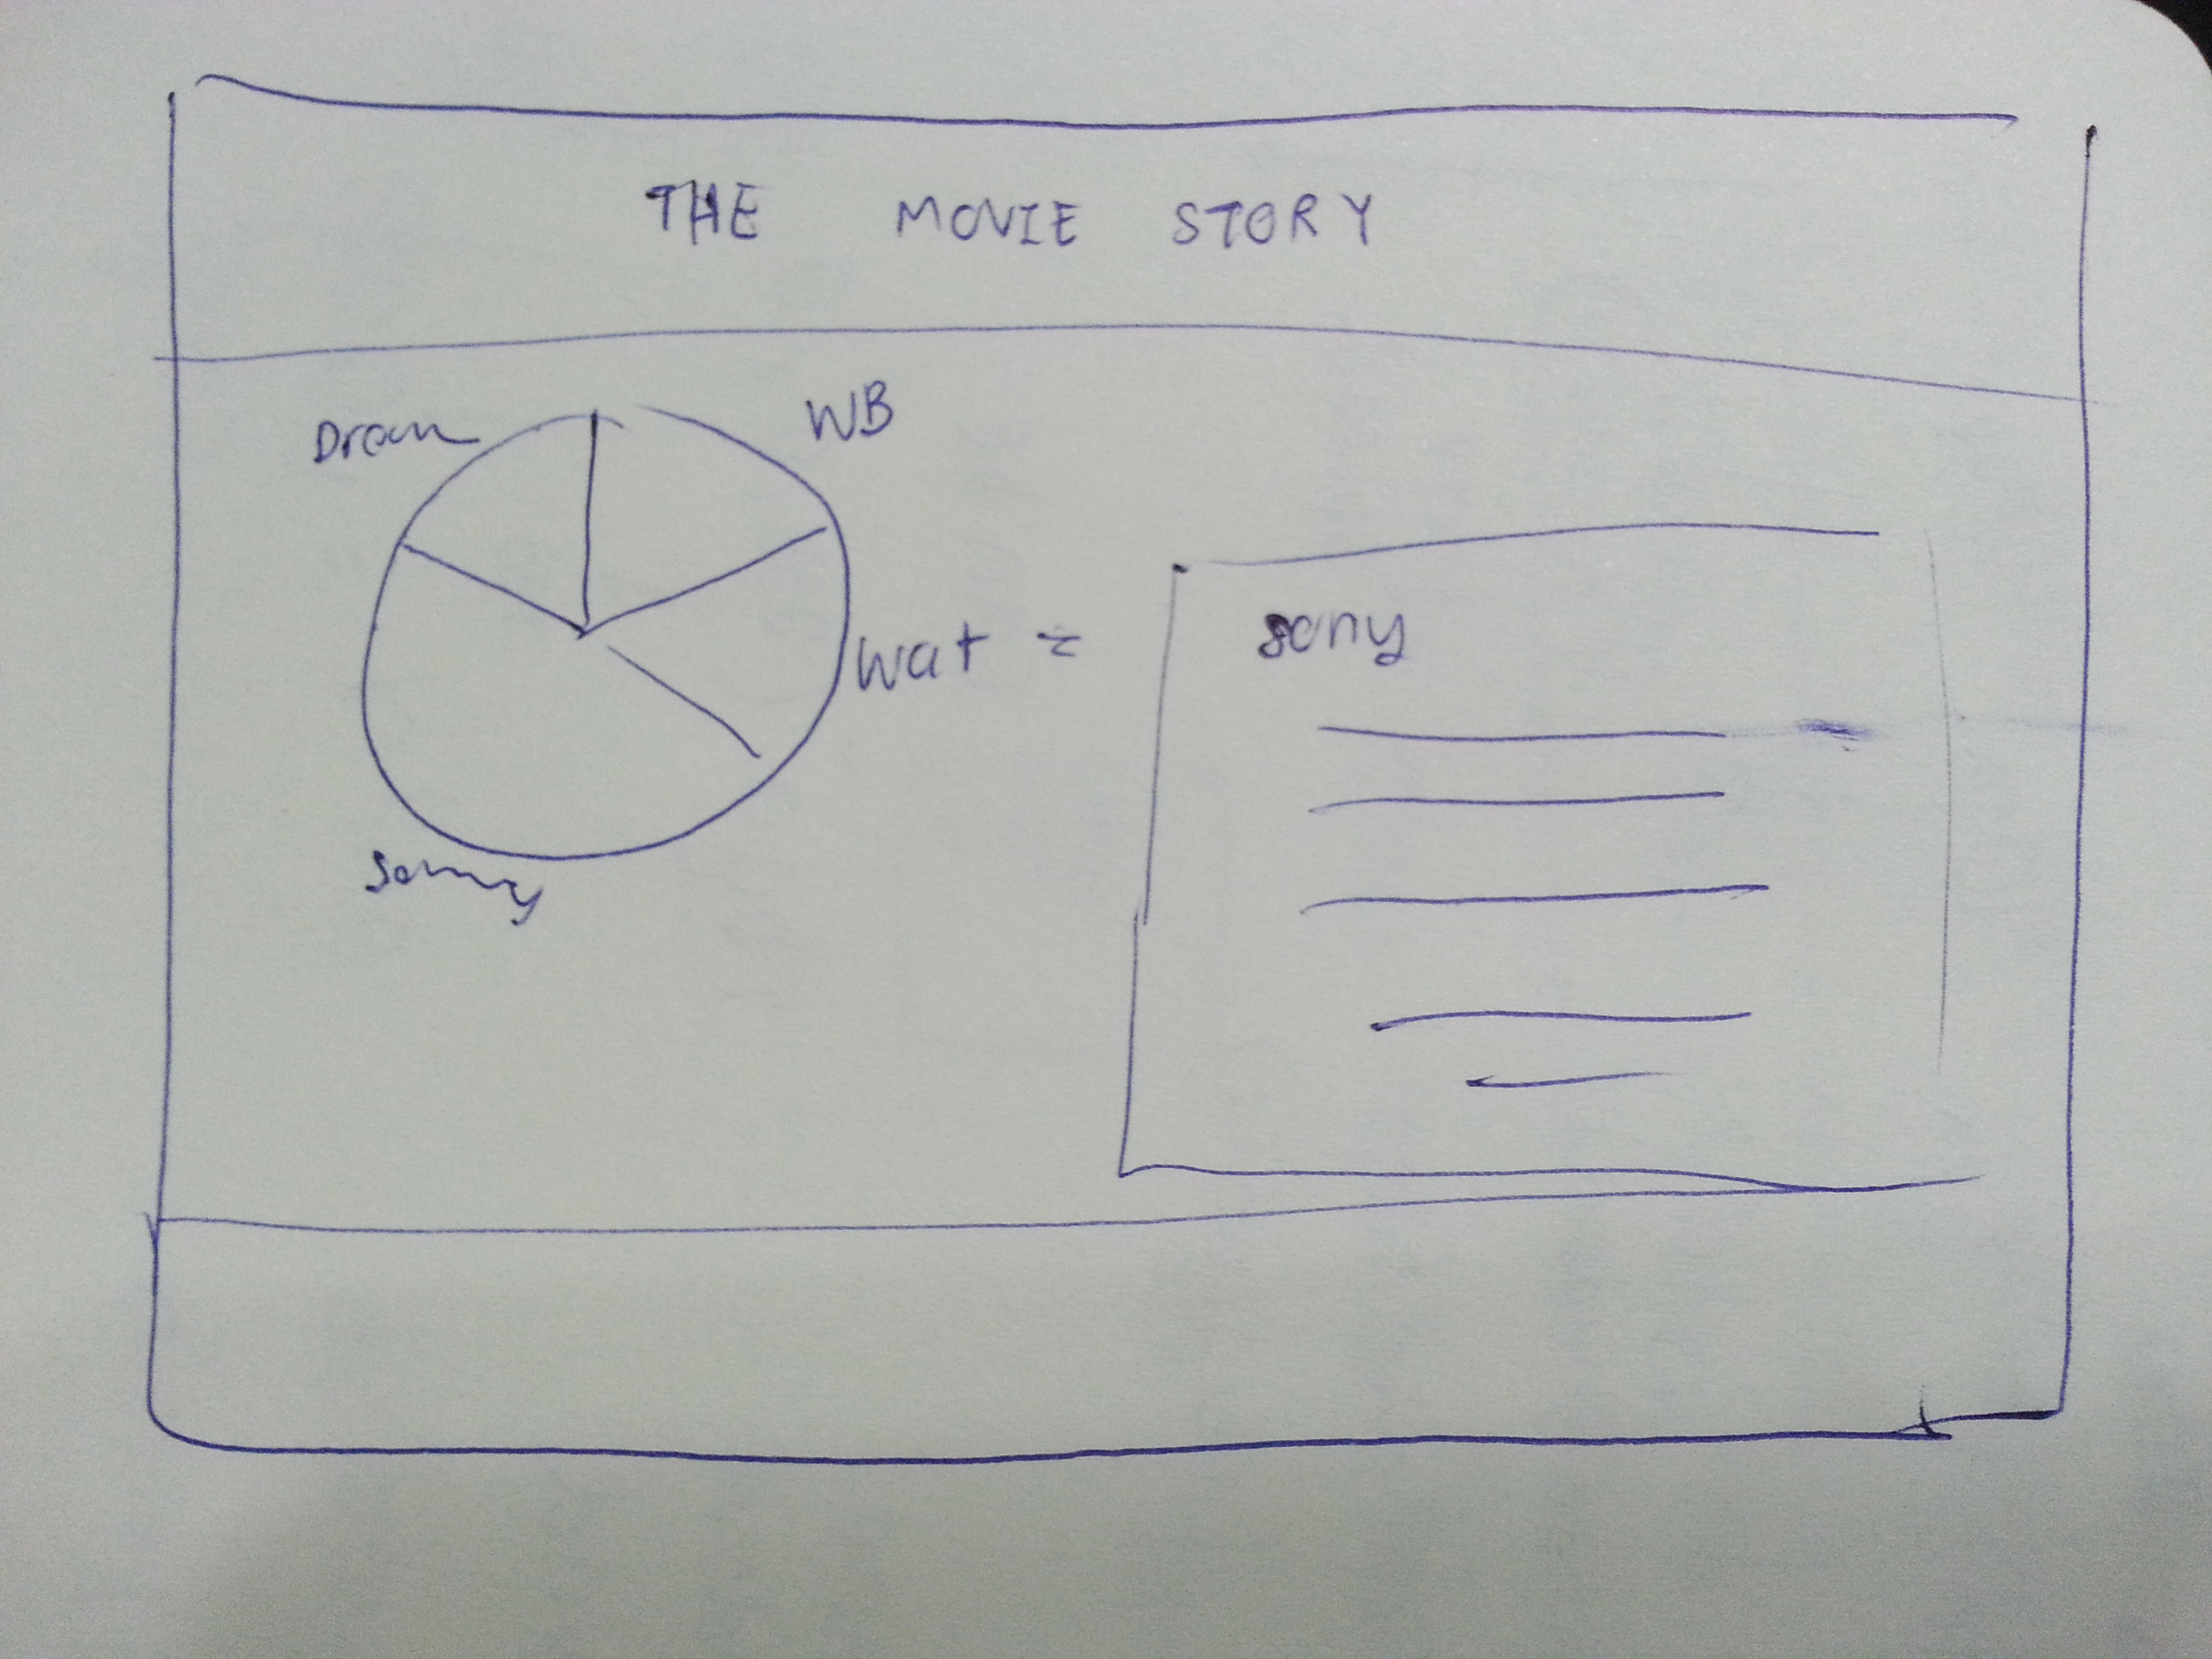 THE MOVIE STORY
Dream
WB
Wat =
sony
Sony